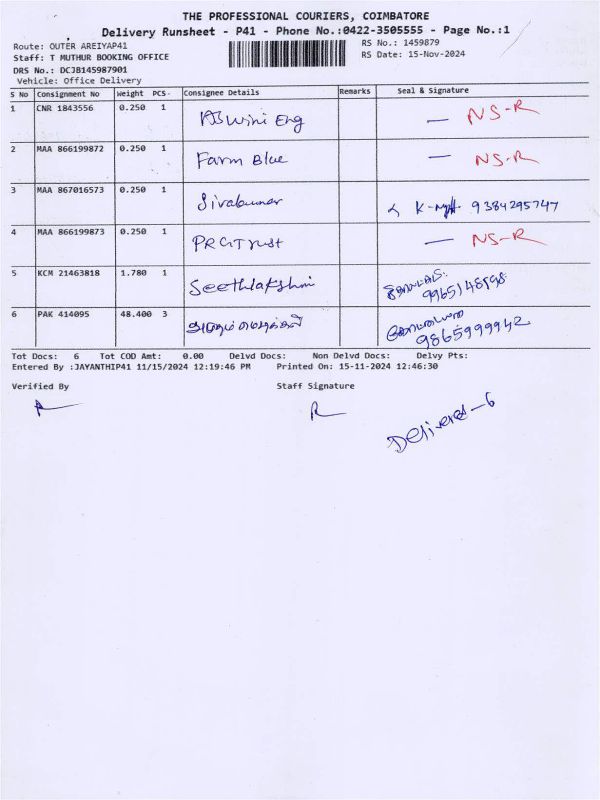 THE PROFESSIONAL COURIERS, COIMBATORE
Delivery Runsheet - P41 - Phone No.:0422-3505555 - Page No.:1
Route: OUTER AREIYAP41 RS No.: 1459879
Staff: T MUTHUR BOOKING OFFICE RS Date: 15-Nov-2024
DRS No.: DCJB145987901
Vehicle: Office Delivery
S No Consignment No Weight PCS- Consignee Details Remarks Seal & Signature
1 CNR 1843556 0.250 1 Aswini Eng — NS-R
2 MAA 866199872 0.250 1 Farm Blue — NS-R
3 MAA 867016573 0.250 1 Sivakumar 9384295747
4 MAA 866199873 0.250 1 PRG Trust — NS-R
5 KCM 21463818 1.780 1 Seethlakshmi
9965148598
6 PAK 414095 48.400 3
9865999942
Tot Docs: 6 Tot COD Amt: 0.00 Delvd Docs: Non Delvd Docs: Delvy Pts:
Entered By :JAYANTHIP41 11/15/2024 12:19:46 PM Printed On: 15-11-2024 12:46:30
Verified By Staff Signature
Delivered-6